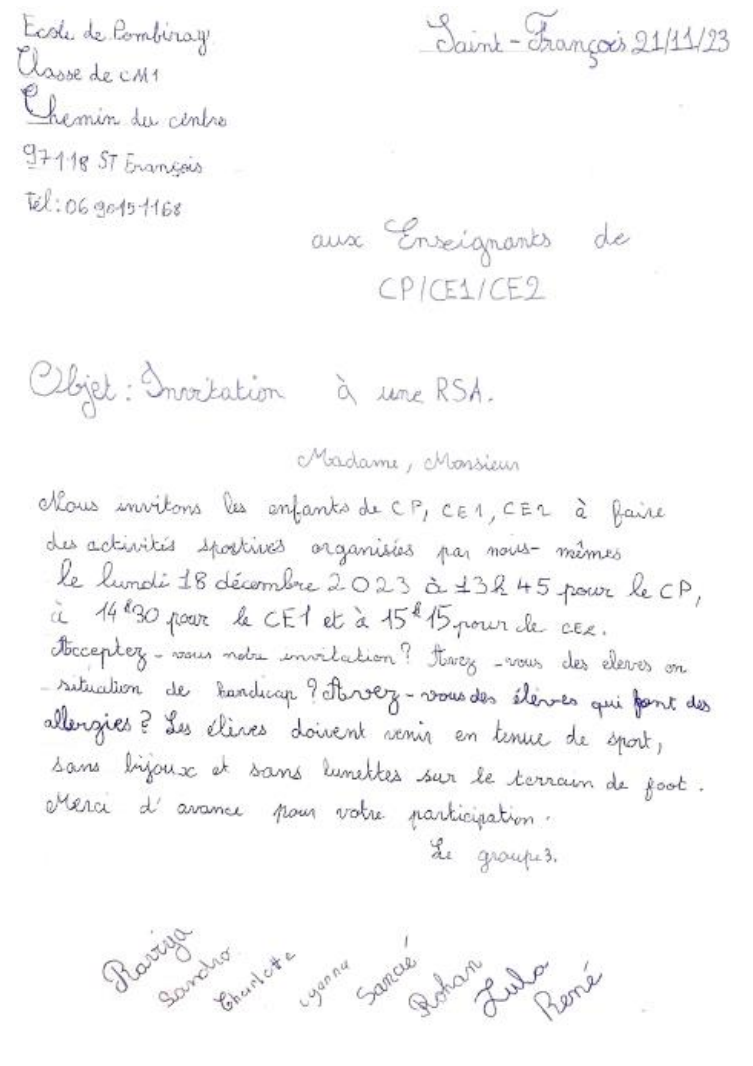 Ecole de Pombiray
Saint-François 21/11/23
Classe de CM1
Chemin du centre
97118 ST François
Tél: 06 90 15 11 68
aux Enseignants de
CP/CE1/CE2
Objet : Invitation à une RSA.
Madame, Monsieur
Nous invitons les enfants de CP, CE1, CE2 à faire
des activités sportives organisées par nous-mêmes
le lundi 18 décembre 2023 à 13h45 pour le CP,
à 14h30 pour le CE1 et à 15h15 pour le CE2.
Acceptez-vous notre invitation? Avez-vous des eleves en
situation de handicap? Avez-vous des élèves qui font des
allergies? Les élèves doivent venir en tenue de sport,
sans bijoux et sans lunettes sur le terrain de foot.
Merci d'avance pour votre participation.
Le groupe3.
Raviya
Sandro
Charlotte
Lyanna
Sancié
Rohan
Luba
René